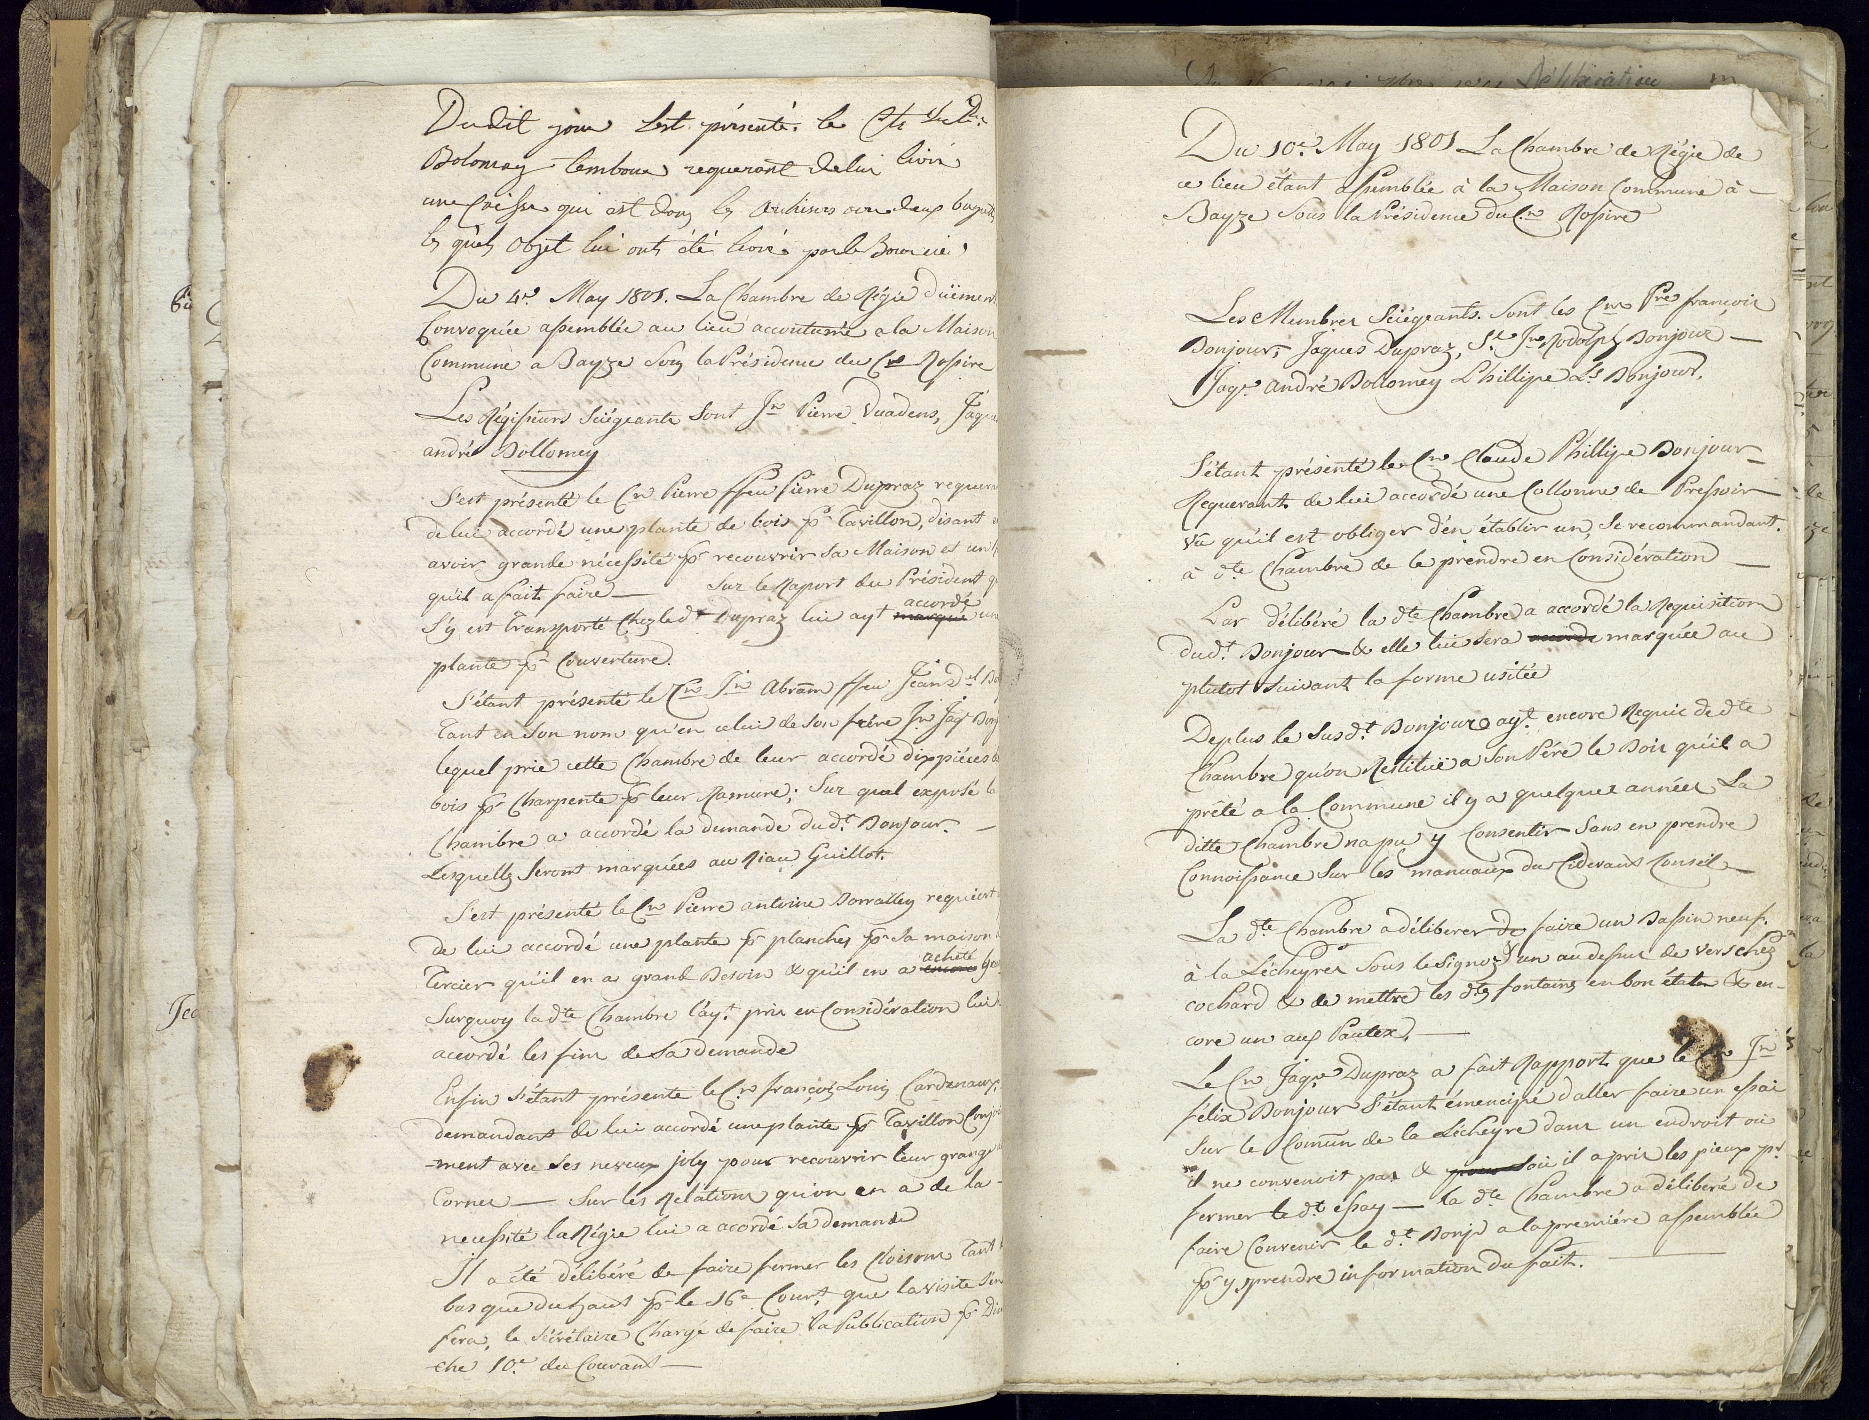 Dudit jour s'est présenté le
Bolomey requerant de lui livré
une Caisse qui est dans les Archives
les quels objet lui onts été livré par le Boursié
Du 4e. May 1801. La Chambre de Régie düëment
Convoquée assemblée au lieu accoutumé a la Maison
Commune a Bayze sous la Présidence du Cn Rossire
Les Régisseurs Siégeants sont Jn Pierre Vuadens, Jaques
andré Bollomey
S'est présenté le Cn Pierre ffeu Pierre Dupraz requera
de lui accordé une plante de bois pr Tavillon, disant
avoir grande nécessité pr recouvrir sa Maison et un
qu'il a fait faire — Sur le Raport du Président q
S'y est Transporté Chez led.t Dupraz lui ayt accordé une
plante pr Couverture.
S'étant présenté le Cn Jn Abram ffeu Jean Dl Bo
Tant en son nom qu'en celui de son frére Jn Jaq Bonj
lequel prie cette Chambre de leur accordé dix piéces de
bois pr Charpente pr leur Ramure; Sur qual exposé la
Chambre a accordé la demande dud.t Bonjour. —
Lesquells seront marquées au Riau Guillot.
S'est présenté le Cn Pierre antoine Borralley requiert
de lui accordé une plante pr planches pr sa maison
Tercier qu'il en a grand Besoin & qu'il en a acheté
Surquoy lad.te Chambre l'ay.t pris en Considération lui
accordé les fins de sa demande
Enfin s'étant présente le Cn françois Louis Cardenaux,
demandant de lui accordé une plante pr Tavillon Conjoi
-ment avec ses neveux joly pour recouvrir leur grange
Cornes — Sur les Relations qu'on en a de la
necessité la Régie lui a acordé sa demande
Il a été délibéré de faire fermer les Cloisons Tant
bas que du haut pr le 16e Court, que la visite s'en
fera, le sécrétaire Chargé de faire la Publication pr Dim
che 10.e du Courant —
Du 10e. May 1801 La Chambre de Régie de
ce lieu étant assemblée à la Maison Commune à —
Bayze sous la Présidence du Cn Rossire
Les Membres Siégeants. sont les Cns Pre françois
Bonjour, Jaques Dupraz, St Jn Rodolph Bonjour —
Jaqs André Bollomey Phillipe Ls Bonjour.
S'étant présenté le Cn Claude Phillipe Bonjour —
Requerant de lui accordé une Collonne de Pressoir
vû qu'il est obliger d'en établir un, se recommandant.
à d.te Chambre de le prendre en Considération —
Par délibéré la d.te Chambre a accordé la Requisition
dud.t Bonjour & elle lui sera marquée au
plutot suivant la forme usitée
Deplus le susd.t Bonjour ay.t encore Requis de d.te
Chambre qu'on Restituë a son Pére le Bois qu'il a
prêté a la Commune il y a quelques années La
ditte Chambre na pu y Consentir sans en prendre
Connoissance sur les manuaux du Cidevant Conseil —
La d.te Chambre a déliberer de faire un Bassin neuf.
à la Lécheyres sous le Signoz & un au dessus de vers chez
cochard & de mettre les d.tes fontaines en bon état & en-
core un aux Pautex. —
Le Cn Jaqs Dupraz a fait Rapport que le Cn Jn
félix Bonjour s'étant émencipé d'aller faire un essai
sur le Comun de la Lécheyre dans un endroit où
il ne convenoit pas & soit il a pris les pieux pr.
fermer le d.t éssay — la d.te Chambre a délibéré de
faire Convenir le d.t Bonjr a la premiére assemblée
pr y prendre information du fait. —